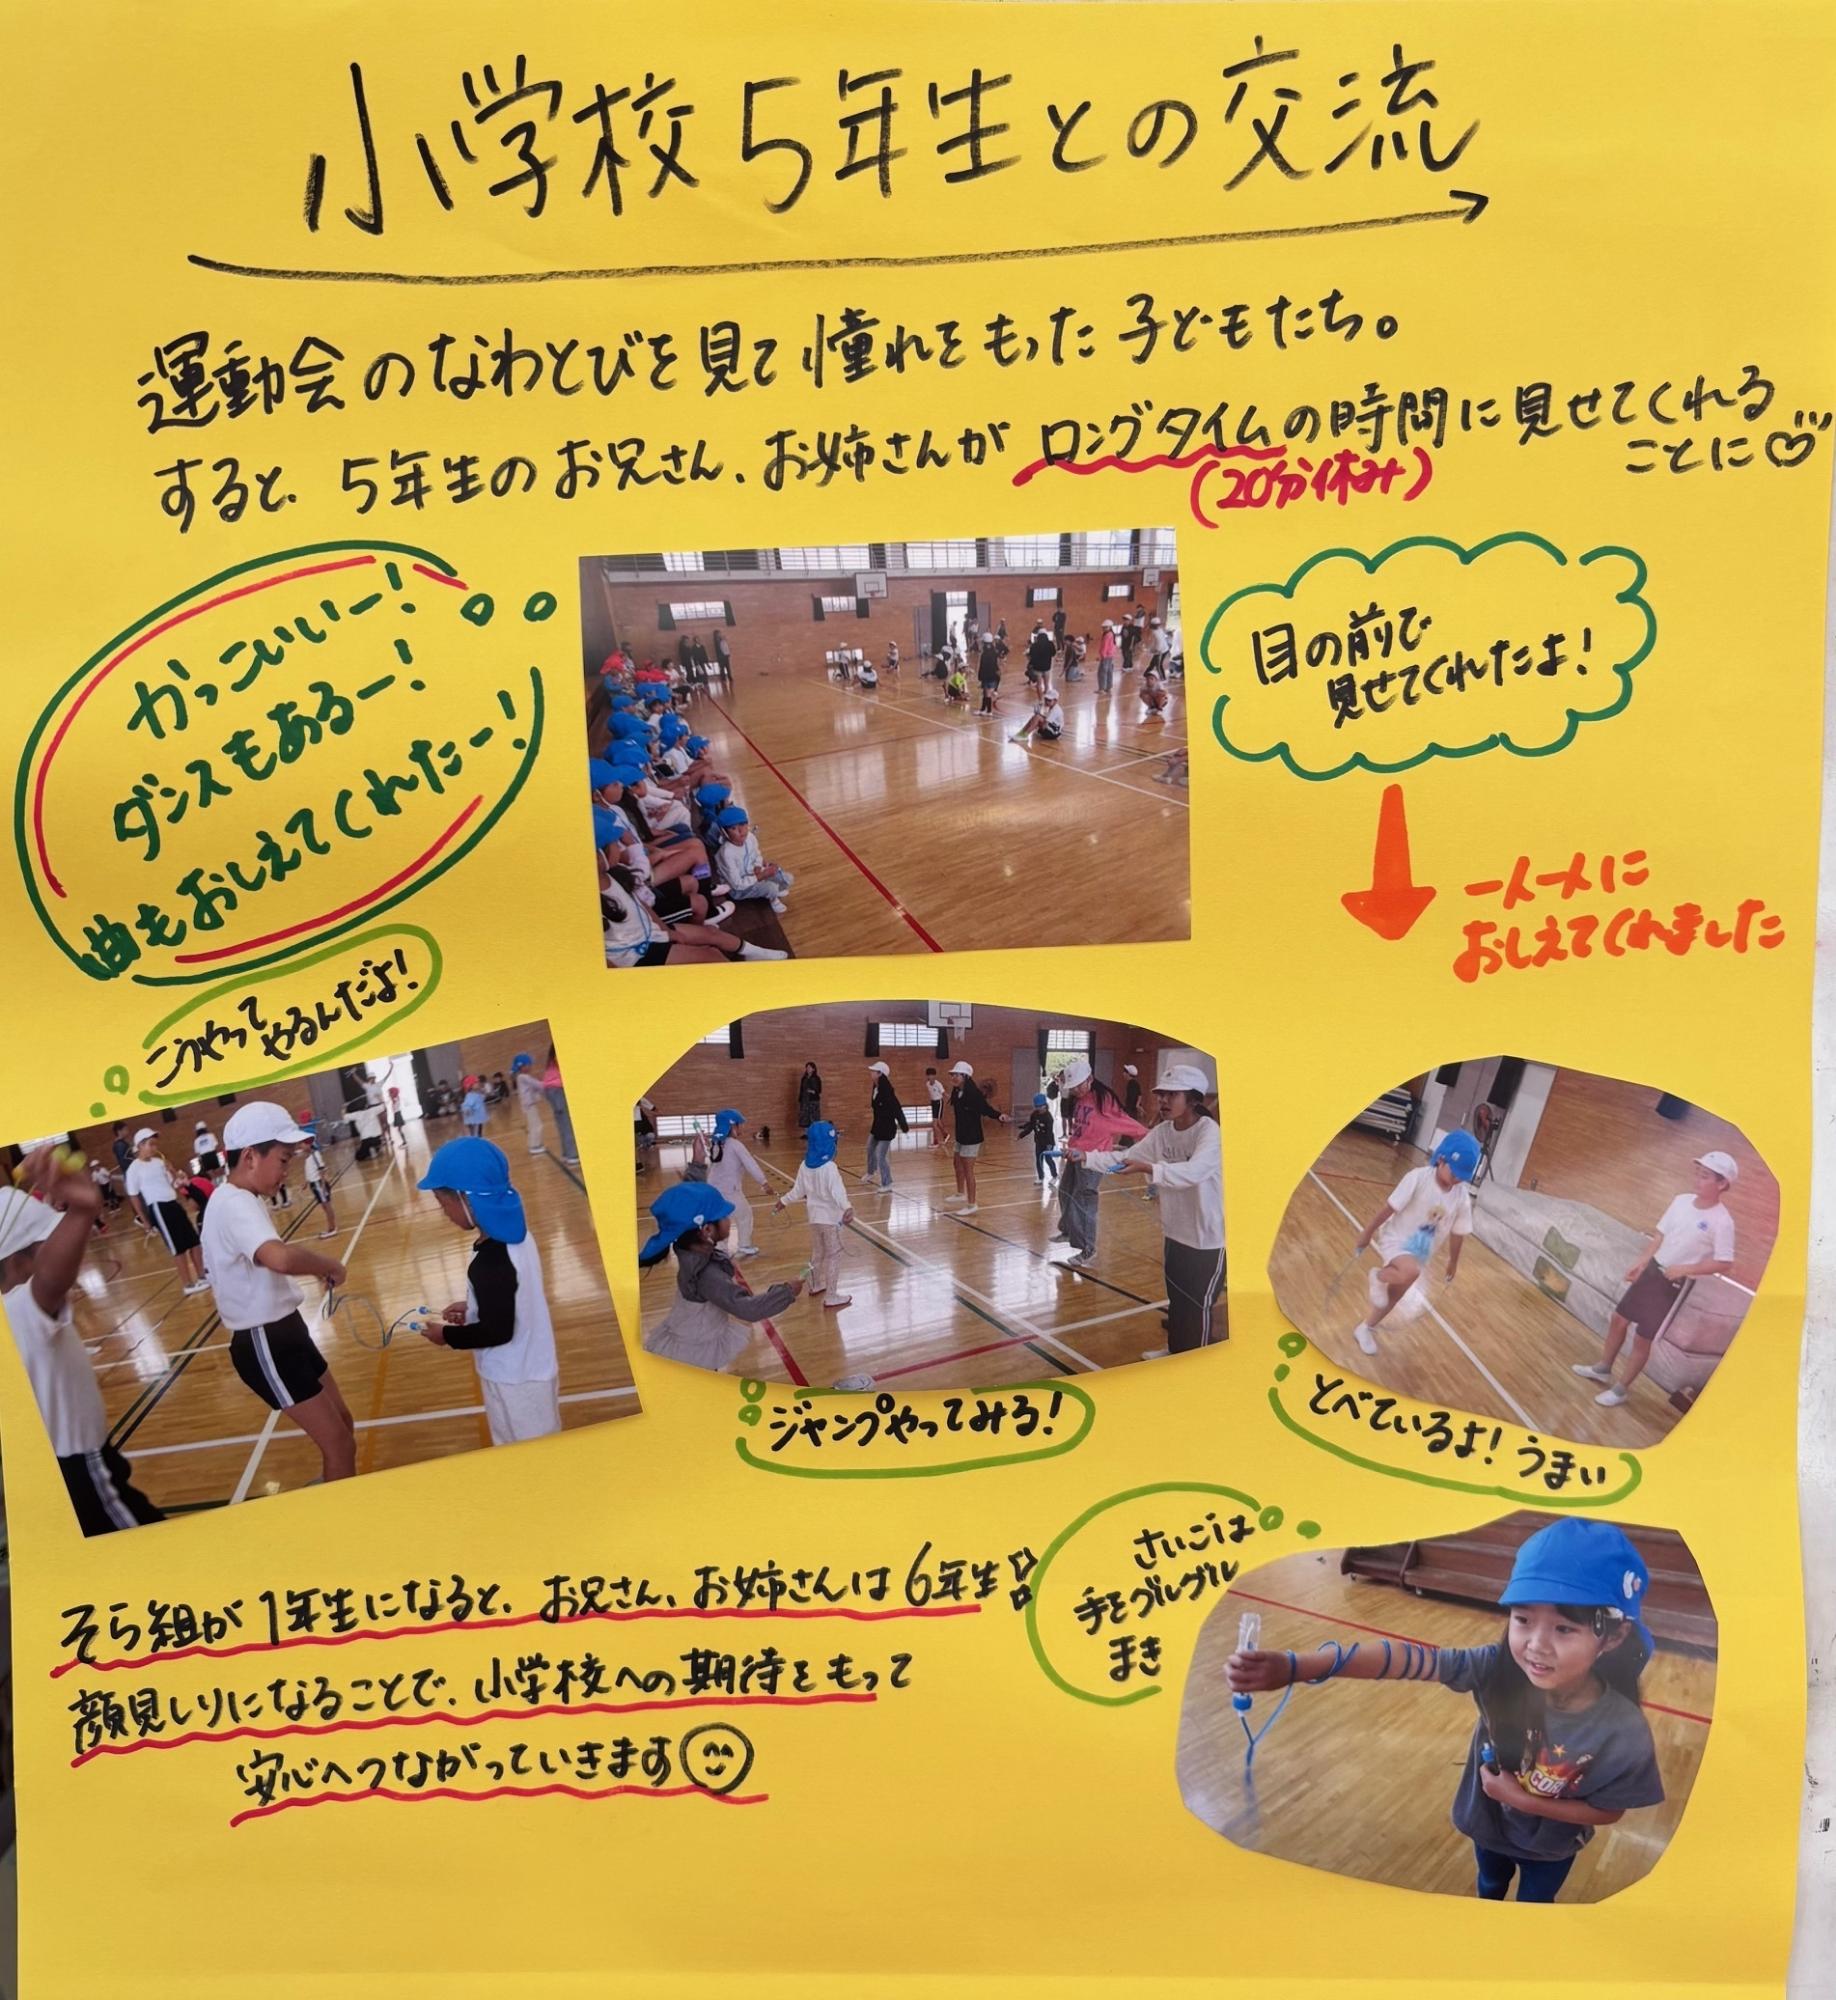 小学校5年生との交流
運動会のなわとびを見て憧れをもった子どもたち。
すると、5年生のお兄さん、お姉さんがロングタイムの時間に見せてくれる
ことに
(20分休み)
かっこいいー!
ダンスもあるー!
曲もおしえてくれたー!
目の前で
見せてくれたよ!
一人一人に
おしえてくれました
こうやって
やるんだよ!
ジャンプやってみる!
とべているよ!うまい
さいごは
手をグルグル
まき
そら組が1年生になると、お兄さん、お姉さんは6年生
顔見しりになることで、小学校への期待をもって
安心へつながっていきます